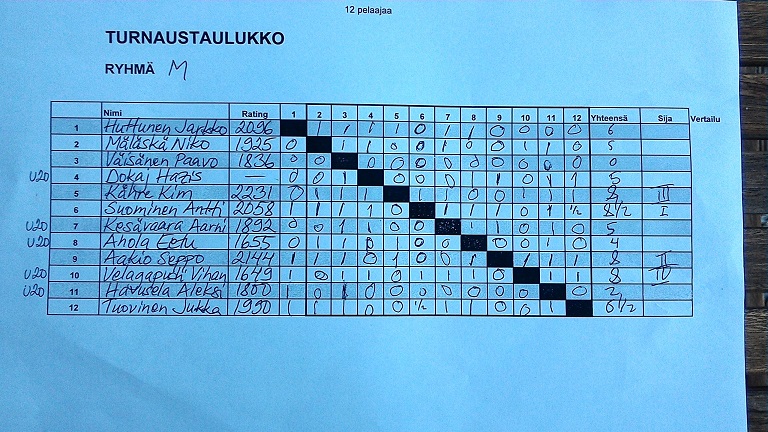 12 pelaajaa
TURNAUSTAULUKKO
RYHMÄ M
Nimi Rating 1 2 3 4 5 6 7 8 9 10 11 12 Yhteensä Sija Vertailu
1 Huttunen Jarkko 2096 1 1 1 1 0 1 1 0 0 0 0 6
2 Mäläskä Niko 1925 0 1 1 0 0 1 0 0 1 1 0 5
3 Väisänen Paavo 1836 0 0 0 0 0 0 0 0 0 0 0 0
U20 4 Dokaj Hazis — 0 0 1 0 0 0 1 1 0 1 1 5
5 Kähre Kim 2231 0 1 1 1 1 1 0 0 1 1 1 8 III
6 Suominen Antti 2058 1 1 1 1 0 1 1 1 0 1 ½ 8 1/2 I
U20 7 Kesävaara Aarni 1892 0 0 1 1 0 0 1 1 0 1 0 5
U20 8 Ahola Eetu 1655 0 1 1 0 1 0 0 0 0 1 0 4
9 Aakio Seppo 2144 1 1 1 0 1 0 0 1 1 1 1 8 II
U20 10 Velagapudi Vihan 1649 1 0 1 1 0 1 1 1 0 1 1 8 IV
U20 11 Havusela Aleksi 1800 1 0 1 0 0 0 0 0 0 0 0 2
12 Tuovinen Jukka 1990 1 1 1 0 0 ½ 1 1 0 0 1 6 1/2